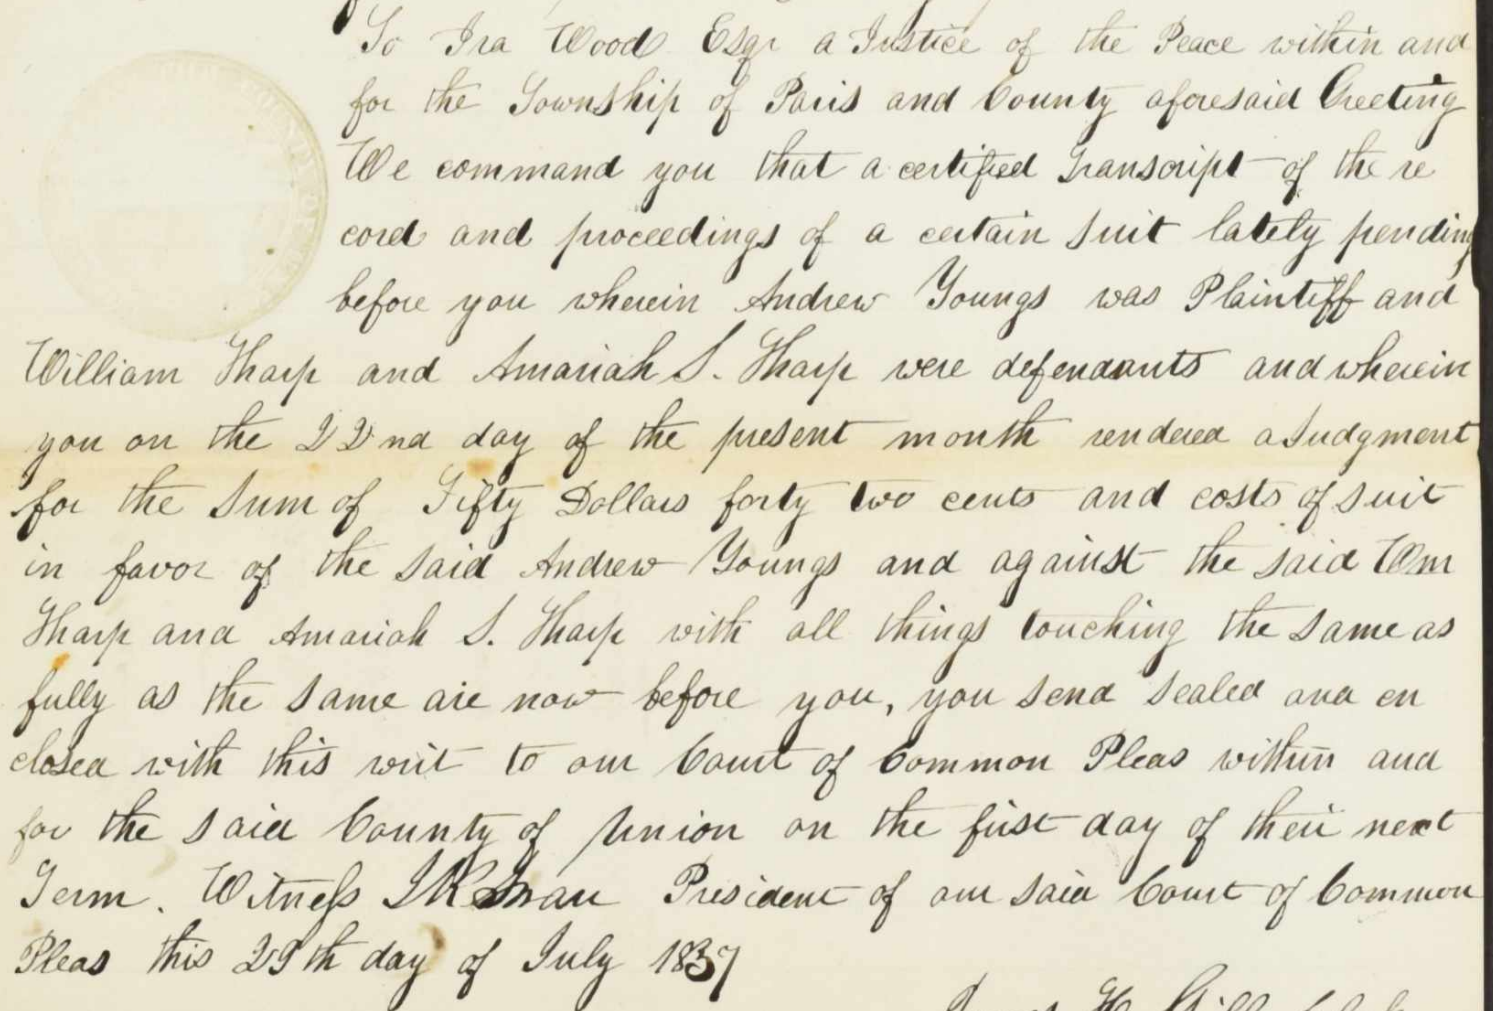 To Ira Wood Esqr a Justice of the Peace within and
for the Township of Paris and County aforesaid Greeting
We command you that a certified Transcript of the re
cord and proceedings of a certain suit lately pending
before you wherein Andrew Youngs was Plaintiff and
William Tharp and Amariah S. Tharp were defendants and wherein
you on the 22nd day of the present month rendered a Judgment
for the sum of Fifty Dollars forty two cents and costs of suit
in favor of the said Andrew Youngs and against the said Wm
Tharp and Amariah S. Tharp with all things touching the same as
fully as the same are now before you, you send sealed and en
closed with this writ to our Court of Common Pleas within and
for the said County of Union on the first day of their next
Term. Witness President of our said Court of Common
Pleas this 29th day of July 1837